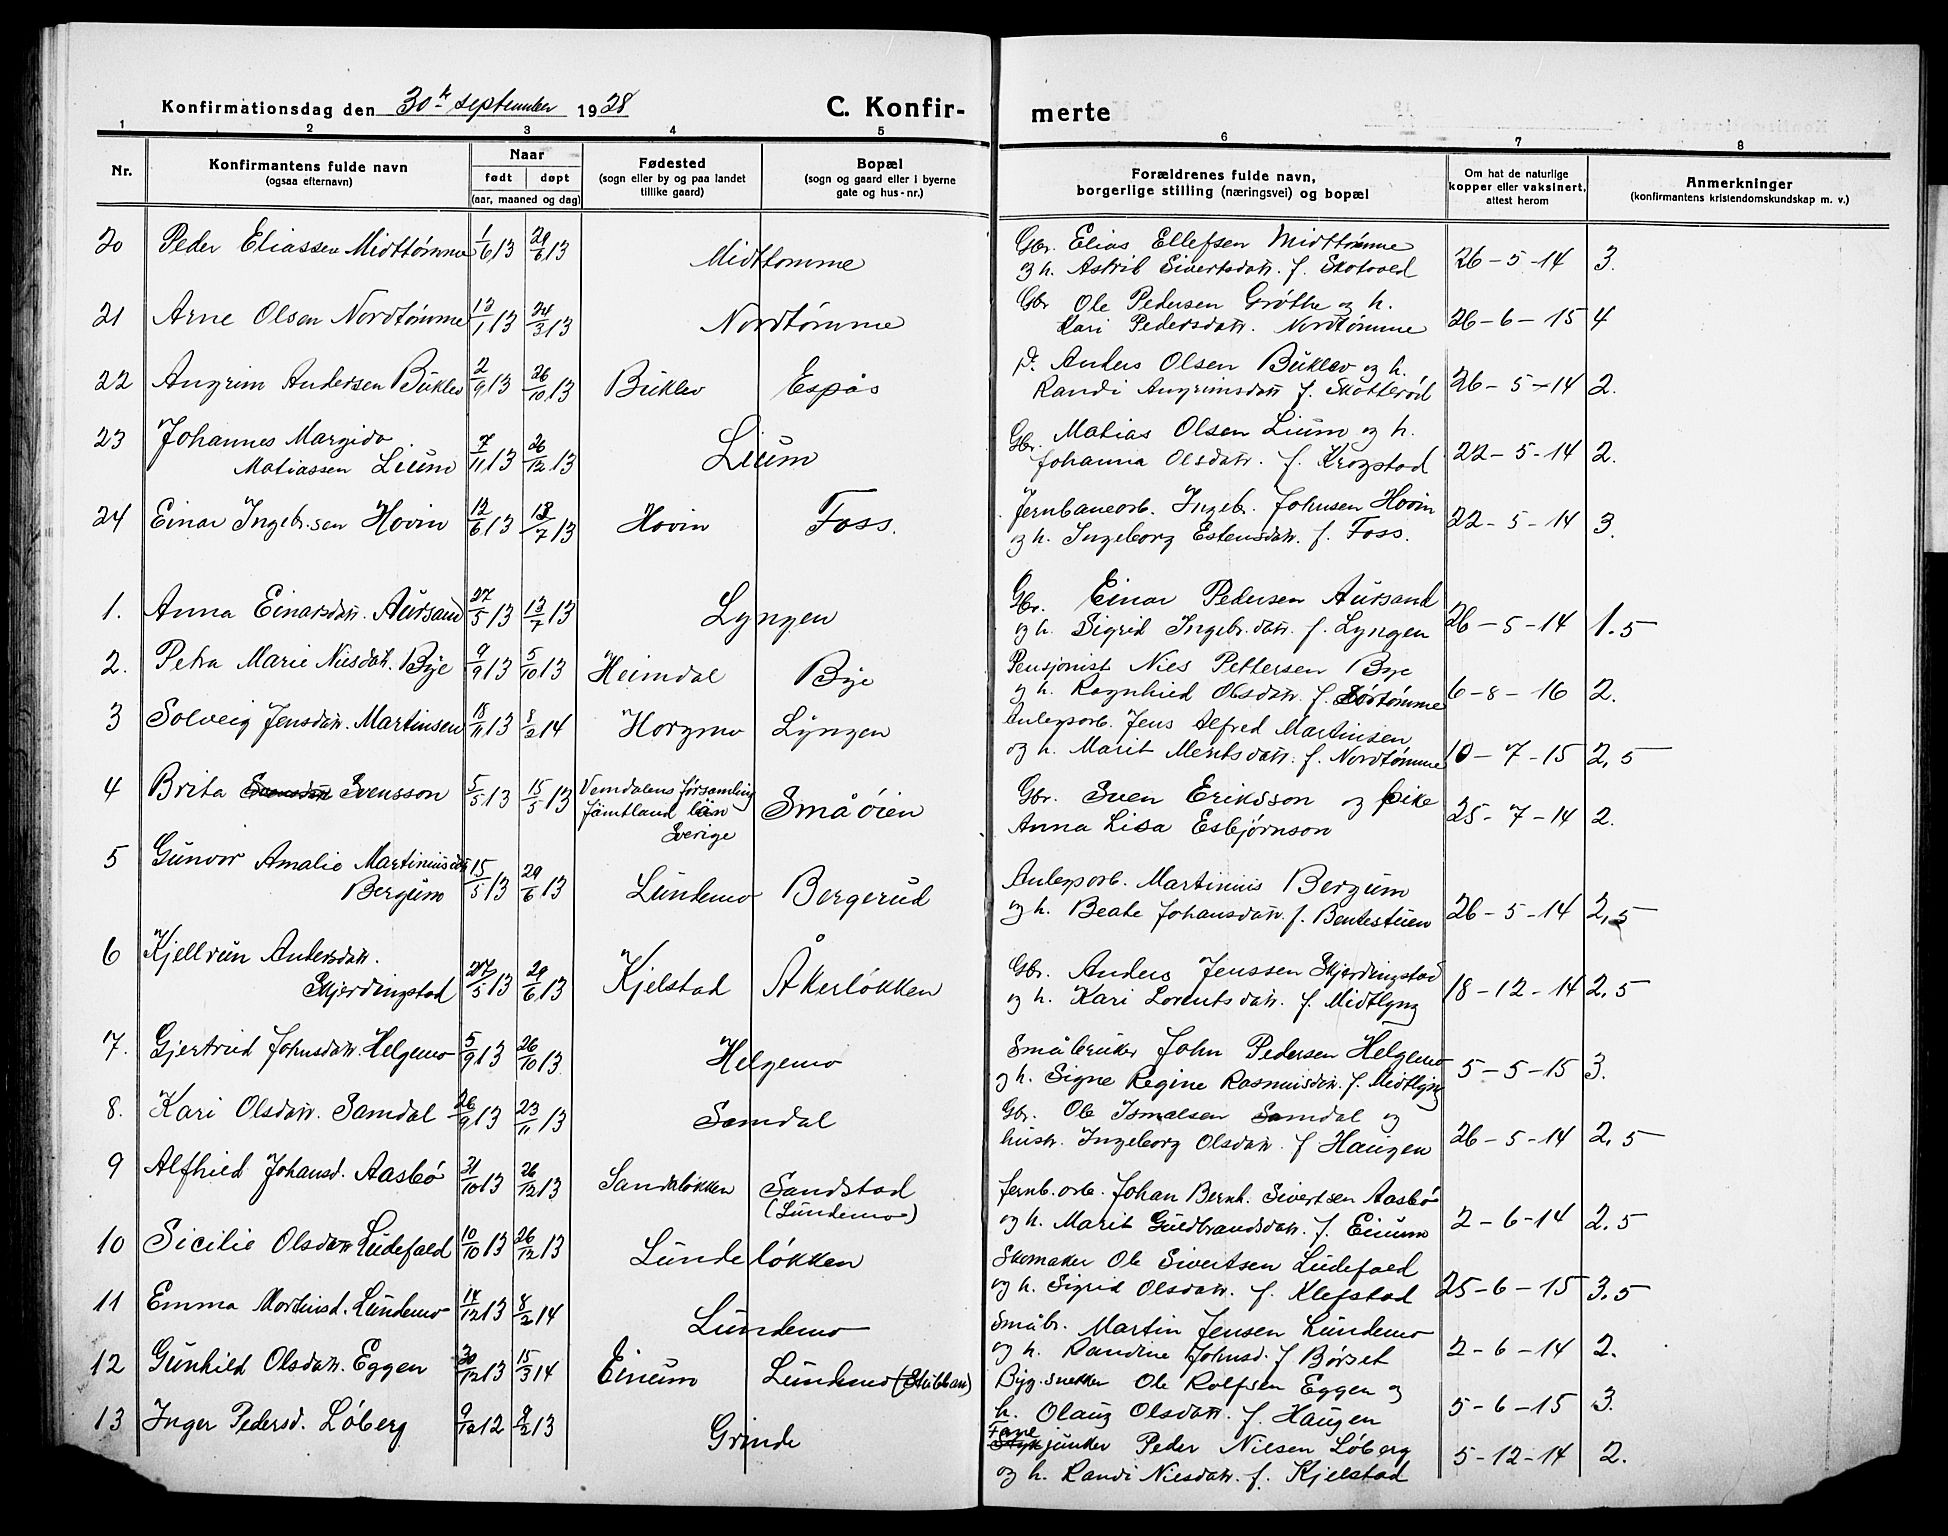 Konfirmationsdag den 30te september 1928
C. Konfir-
merte
1 2 3 4 5 6 7 8
Nr.
Konfirmantens fulde navn
(ogsaa efternavn)
Naar
født døpt
(aar, maaned og dag)
Fødested
(sogn eller by og paa landet
tillike gaard)
Bopæl
(sogn og gaard eller i byerne
gate og hus-nr.)
Forældrenes fulde navn,
borgerlige stilling (næringsvei) og bopæl
Om hat de naturlige
kopper eller vaksinert,
attest herom
Anmerkninger
(konfirmantens kristendomskundskap m. v.)
20 Peder Eliassen Midttømme 1/6 13 29/6 13 Midttømme
Gbr. Elias Ellefsen Midttømme
og h. Astrid Sivertsdatr. f. 26-5-14 3.
21 Arne Olsen Nordtømme 12/1 13 24/3 13 Nordtømme
Gbr Ole Pedersen Grøthe og h.
Kari Pedersdatr. Nordtømme 26-6-15 4
22 Angrim Andersen Buklev 2/9 13 26/10 13 Buklev Espås
Anders Olsen Buklev og h.
Randi Angrimsdatr f. Skotterød 26-5-14 2.
23 Johannes Margido
Matiassen Lium 7/11 13 26/12 13 Lium
Gbr. Matias Olsen Lium og h.
Johanna Olsdatr. f. Krogstad 22-5-14 2.
24 Einar Ingebr.sen Hovin 12/6 13 13/7 13 Hovin Foss.
Jernbanearb. Ingebr. Johnsen Hovin
og h. Ingeborg Estensdatr. f. Foss. 22-5-14 3.
1. Anna Einarsdatr. Aursand 27/5 13 13/7 13 Lyngen
Gbr. Einar Pedersen Aursand
og h. Sigrid Ingebr.datr. f. Lyngen 26-5-14 1.5
2. Petra Marie Nilsdatr. Bye 9/9 13 5/10 13 Heimdal Bye
Pensjonist Nils Pettersen Bye
og h. Ragnhild Olsdatr. f. Sørtømme 6-8-16 2.
3 Solveig Jensdatr. Martinsen 18/11 13 8/2 14 Horgmo Lyngen
Anlegsarb. Jens Alfred Martinsen
og h. Marit Meritsdatr. f. Nordtømme 10-7-15 2,5
4 Brita Svensson 5/5 13 15/5 13 Vemdalens församling
Jämtland län
Sverige Småøien
Gbr. Sven Eriksson og pike
Anna Lisa Esbjørnson 25-7-14 2.
5 Gunvor Amalie Martiniusdtr
Bergum 15/5 13 29/6 13 Lundemo Bergerud
Anlegsarb. Martinius Bergum
og h. Beate Johansdatr. f. Bentestuen 26-5-14 2,5
6 Kjellrun Andersdatr.
Skjerdingstad 27/5 13 29/6 13 Kjelstad Åkerløkken
Gbr. Anders Jenssen Skjerdingstad
og h. Kari Lorentsdatr. f. Midtlyng 18-12-14 2,5
7. Gjertrud Johnsdatr. Helgemo 5/9 13 26/10 13 Helgemo
Småbruker John Pedersen Helgemo
og h. Signe Regine Rasmusdatr. f. Midtlyng 5-5-15 3.
8. Kari Olsdatr. Samdal 26/9 13 23/11 13 Samdal
Gbr. Ole Ismalsen Samdal og
hustr. Ingeborg Olsdatr. f Haugen 26-5-14 2,5
9 Alfhild Johansd. Aasbø 21/10 13 26/12 13 Sandeløkken Sandstad
(Lundemo)
Jernb.arb. Johan Bernh. Sivertsen Aasbø
og h. Marit Guldbrandsdatr. f. Einum 2-6-14 2,5
10 Sicilie Olsdatr Ludefald 10/10 13 26/12 13 Lundeløkken
Skomaker Ole Sivertsen Ludefald
og h. Sigrid Olsdatr. f. Klefstad 25-6-15 3,5
11 Emma Martinsd. Lundemo 14/12 13 8/2 14 Lundemo
Småbr. Martin Jensen Lundemo
og h. Randine Johnsd. f Børset 2-6-14 2.
12 Gunhild Olsdatr. Eggen 30/12 13 15/3 14 Einum Lundemo (Stubban)
Byg.snekker Ole Rolfsen Eggen og
h. Olaug Olsdatr. f. Haugen 5-6-15 3.
13 Inger Pedersd. Løberg 9/12 12 9/2 13 Grinde
Fanejunker Peder Nilsen Løberg
og h. Randi Nilsdatr. f. Kjelstad 5-12-14 2.